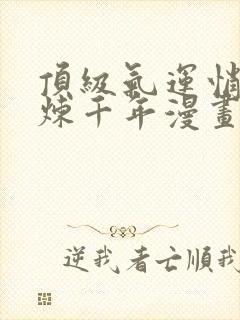 頂級氣運悄
煉千年漫畫
逆我者亡順我